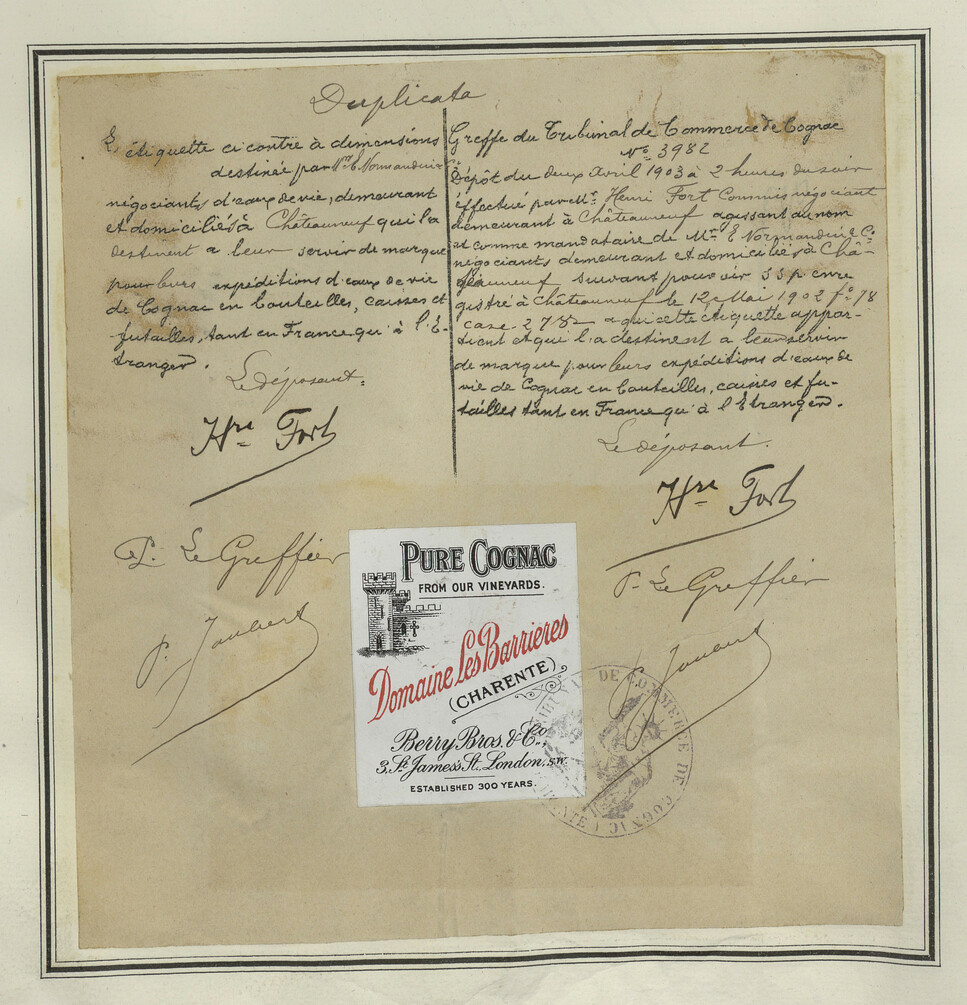 Duplicata
L'étiquette ci contre à dimensions
destinée par Mrs E. Normandin & Cie
négociants d'eaux de vie, demeurant
et domiciliés à Châteauneuf qui l'a
destinent a leur servir de marque
pour leurs expéditions d'eaux de vie
de Cognac en bouteilles, caisses et
futailles, tant en France qu'à l'E-
tranger.
Le déposant.
Hri Fort
P. Le Greffier
P. Joubert
Greffe du Tribunal de Commerce de Cognac
No 3982
Dépôt du deux Avril 1903 à 2 heures du soir
effectué par Mr. Henri Fort Commis négociant
demeurant à Châteauneuf agissant au nom
et comme mandataire de Mrs E Normandin & Co
négociants demeurant et domiciliés à Châ-
teauneuf suivant pouvoir s s p enre
gistré à Châteauneuf le 12 Mai 1902 fo 78
case 27 a qui cette étiquette appar-
tient et qui l'a destinent a leur servir
de marque pour leurs expéditions d'eaux de
vie de Cognac en bouteilles, caisses et fu-
tailles tant en France qu'à l'Etranger.
Le déposant.
Hri Fort
P. Le Greffier
P. Joubert
PURE COGNAC
FROM OUR VINEYARDS.
Domaine Les Barrières
(CHARENTE)
Berry Bros. & Co.,
3, St. James's St., London, S.W.
ESTABLISHED 300 YEARS.
DE COMMERCE DE COGNAC